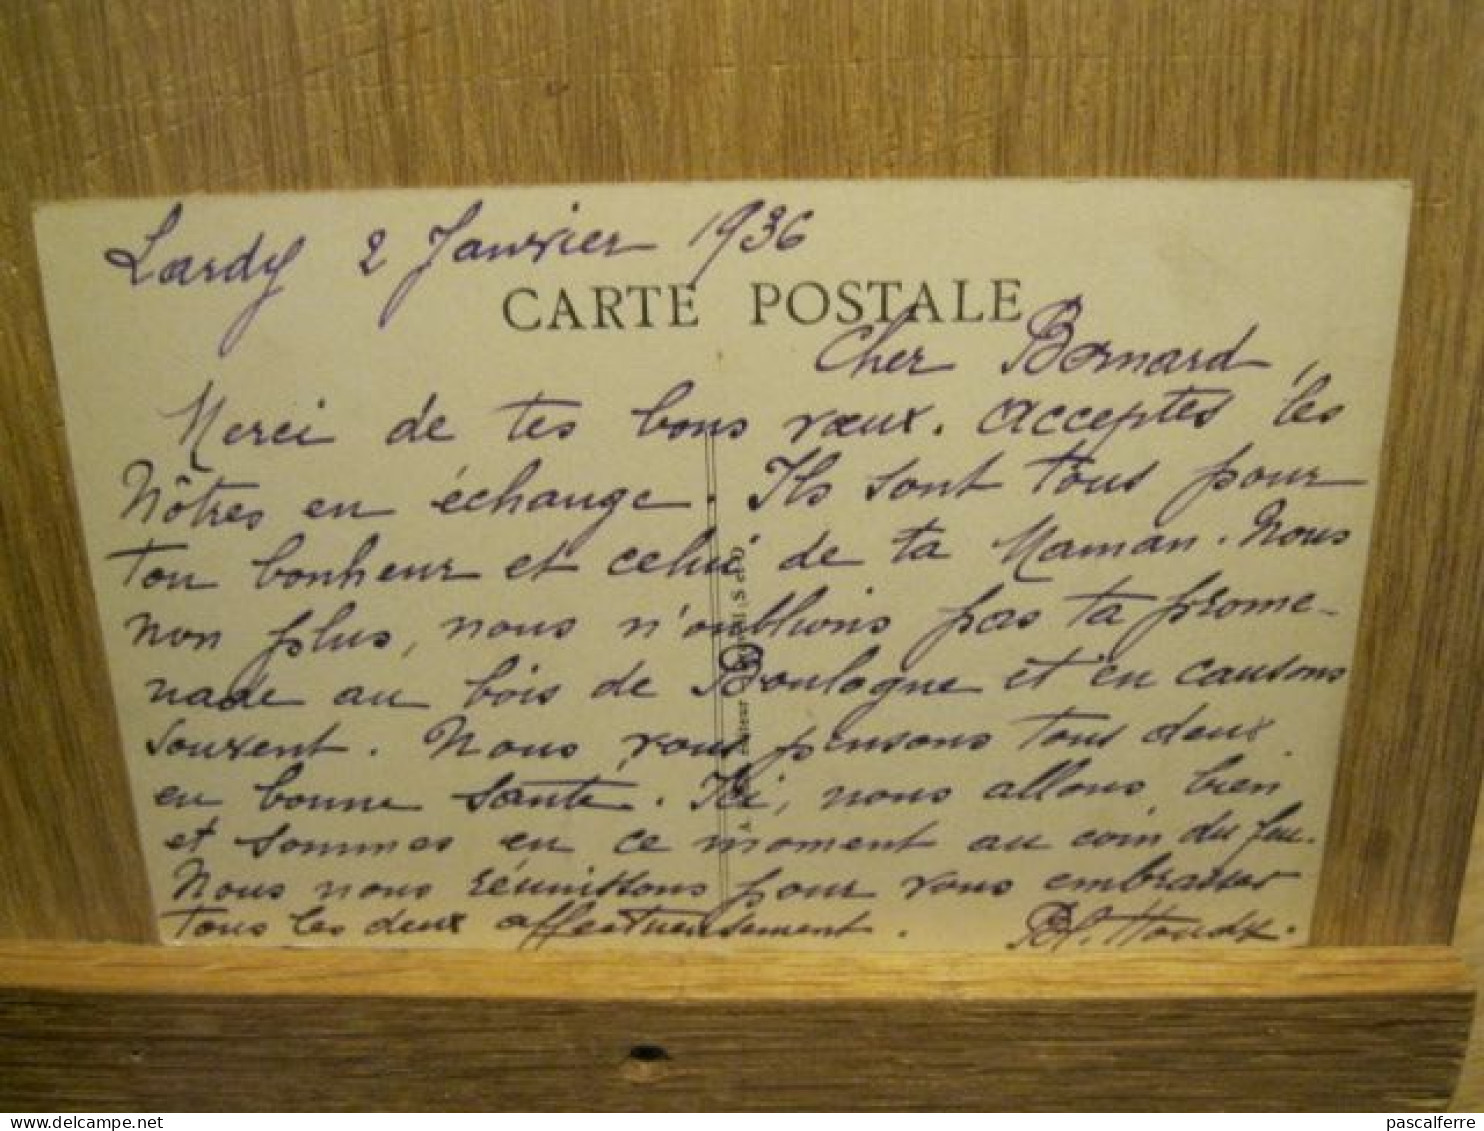 Lardy 2 Janvier 1936
CARTE POSTALE
Cher Bernard,
Merci de tes bons vœux. acceptes les
Nôtres en échange. Ils sont tous pour
ton bonheur et celui de ta Maman. Nous
non plus, nous n'oublions pas ta prome-
nade au bois de Boulogne et en causons
souvent. Nous vous pensons tous deux
en bonne santé. Ici, nous allons bien
et sommes en ce moment au coin du feu.
Nous nous réunissons pour vous embrasser
tous les deux affectueusement.
pascalferre